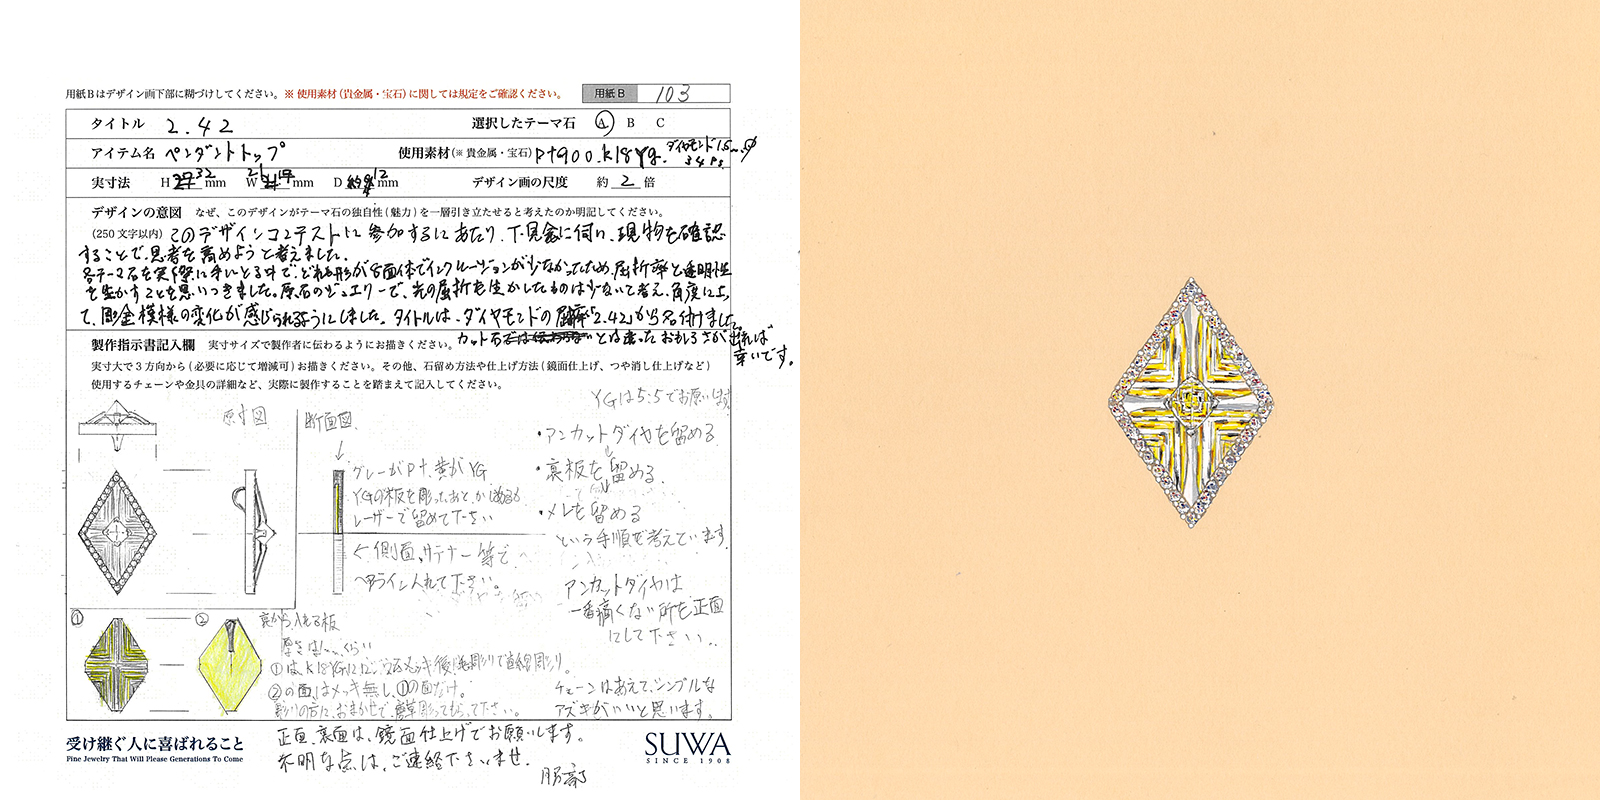 用紙Bはデザイン画下部に糊づけしてください。※ 使用素材（貴金属・宝石）に関しては規定をご確認ください。 用紙B 103
タイトル 2.42 選択したテーマ石 A B C
アイテム名 ペンダントトップ 使用素材(※ 貴金属・宝石) Pt900.K18Yg. ダイヤモンド
実寸法 H 32 mm W mm D 12 mm デザイン画の尺度 約 2 倍
デザインの意図 なぜ、このデザインがテーマ石の独自性(魅力)を一層引き立たせると考えたのか明記してください。
(250文字以内) このデザインコンテストに参加するにあたり、下見会に伺い、現物を確認
することで、思考を高めようと考えました。
各テーマ石を実際に手にとる中で、どれも形が8面体でインクルージョンが少なかったため、屈折率と透明性
を生かすことを思いつきました。原石のジュエリーで、光の屈折を生かしたものは少ないと考え、角度によっ
て、彫金模様の変化が感じられるようにしました。タイトルは、ダイヤモンドの屈折率「2.42」から名付けました。
カット石とは違ったおもしろさが出れば
幸いです。
製作指示書記入欄 実寸サイズで製作者に伝わるようにお描きください。
実寸大で3方向から(必要に応じて増減可)お描きください。その他、石留め方法や仕上げ方法(鏡面仕上げ、つや消し仕上げなど)
使用するチェーンや金具の詳細など、実際に製作することを踏まえて記入してください。
YGは5:5でお願いします
原寸図 断面図
・アンカットダイヤを留める
↓
・裏板を留める
↓
・メレを留める
という手順で考えています。
グレーがPt、黄がYG
YGの板を彫ったあと、かしめるか
レーザーで留めて下さい
←側面、サテナー等で
ヘアライン入れて下さい。
アンカットダイヤは
一番痛くない所を正面
にして下さい。
① ② 裏から入れる板
厚さは くらい
①は、K18YGに メッキ後、毛彫りで直線彫り。
②の面はメッキ無し、①の面だけ。
彫りの方に、おまかせで、唐草彫ってもらって下さい。
チェーンはあえて、シンプルな
アズキがいいと思います。
正面、裏面は、鏡面仕上げでお願いします。
不明な点は、ご連絡下さいませ。
服部
受け継ぐ人に喜ばれること
Fine Jewelry That Will Please Generations To Come
SUWA
SINCE 1908